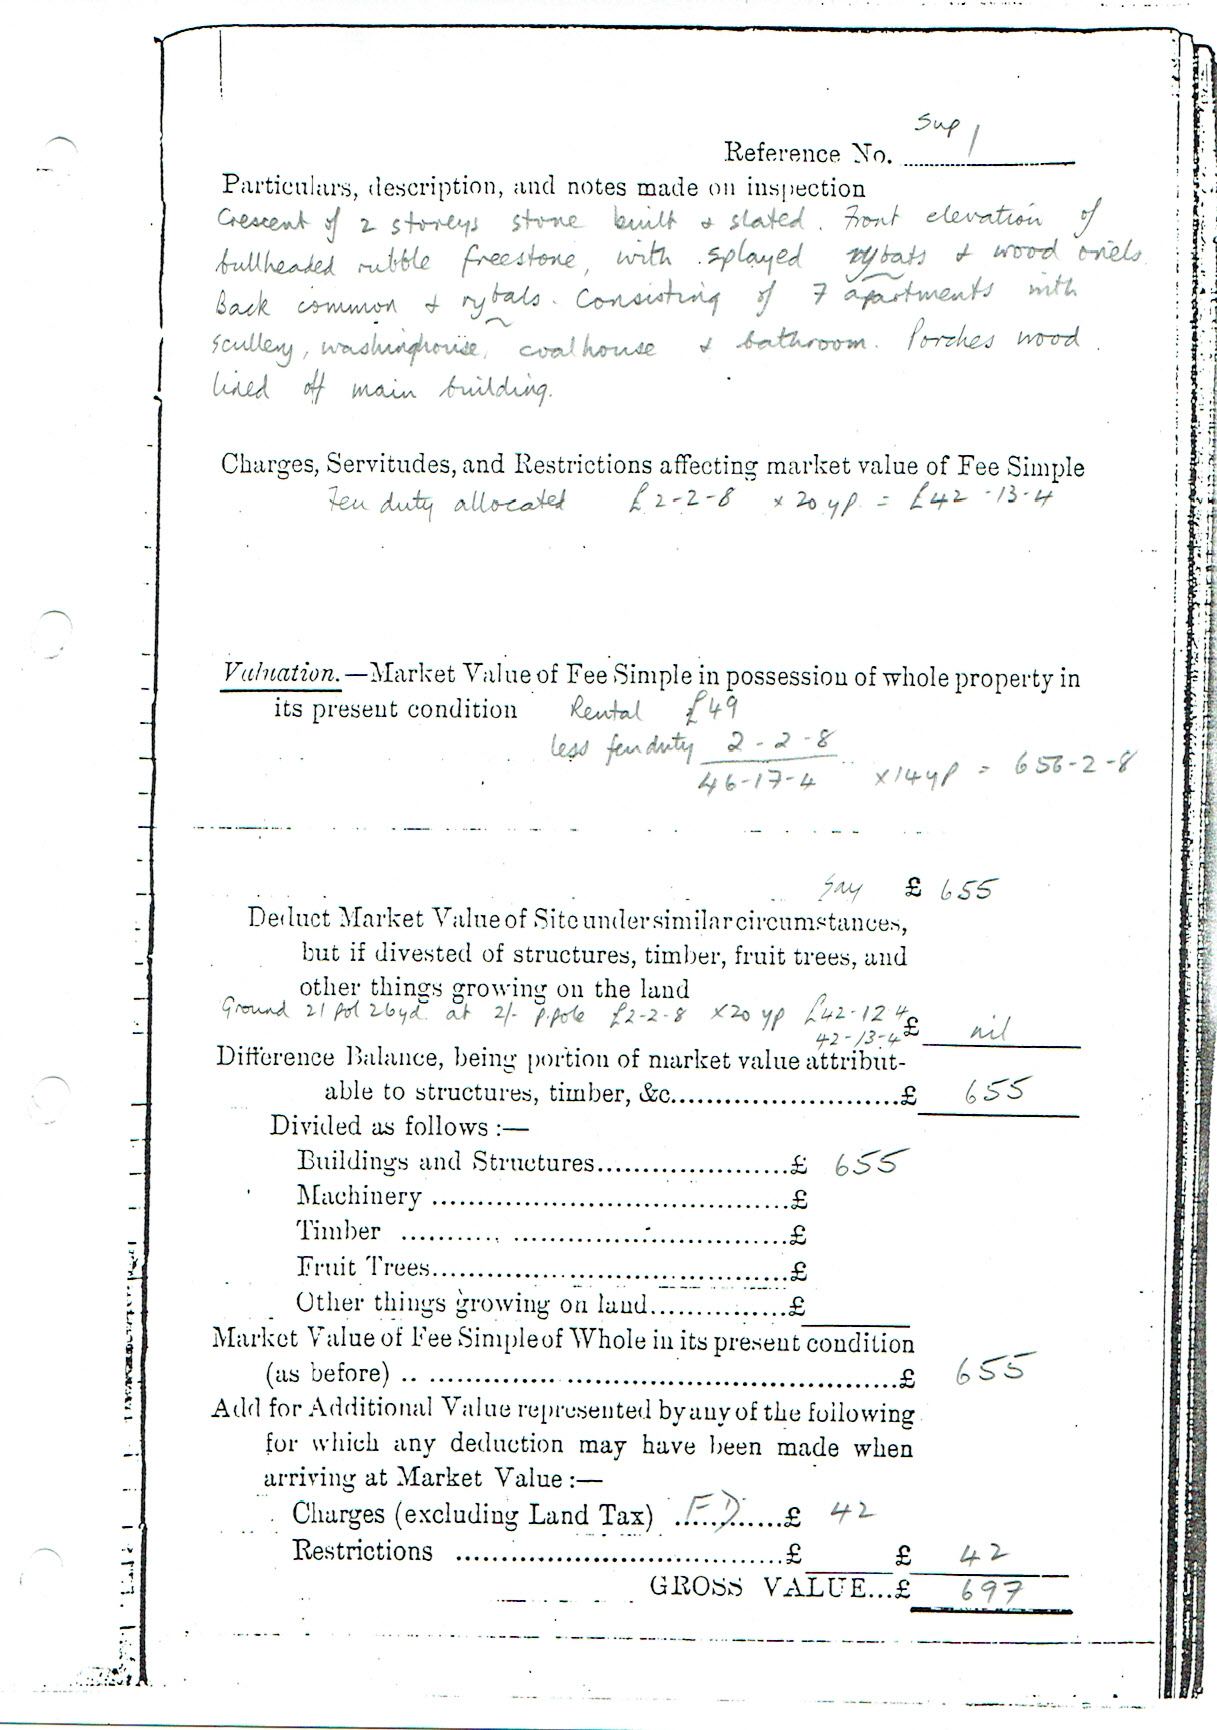 Sup 1
Reference No.
Particulars, description, and notes made on inspection
Crescent of 2 storeys stone built & slated. Front elevation of
bullheaded rubble freestone, with splayed rybats & wood oriels
Back common & rybats. Consisting of 7 apartments with
scullery, washinghouse, coalhouse & bathroom. Porches wood
lined off main building.
Charges, Servitudes, and Restrictions affecting market value of Fee Simple
Feu duty allocated £2-2-8 x 20 yp = £42-13-4
Valuation.—Market Value of Fee Simple in possession of whole property in
its present condition Rental £49
less feu duty 2-2-8
46-17-4 x 14 yp = 656-2-8
Say £ 655
Deduct Market Value of Site under similar circumstances,
but if divested of structures, timber, fruit trees, and
other things growing on the land
Ground 21 pol 26 yd. at 2/- p.pole £2-2-8 x 20 yp £42-12 4
42-13-4 £ nil
Difference Balance, being portion of market value attribut-
able to structures, timber, &c. £ 655
Divided as follows :—
Buildings and Structures £ 655
Machinery £
Timber £
Fruit Trees £
Other things growing on land £
Market Value of Fee Simple of Whole in its present condition
(as before) £ 655
Add for Additional Value represented by any of the following
for which any deduction may have been made when
arriving at Market Value :—
Charges (excluding Land Tax) FD £ 42
Restrictions £ £ 42
GROSS VALUE...£ 697